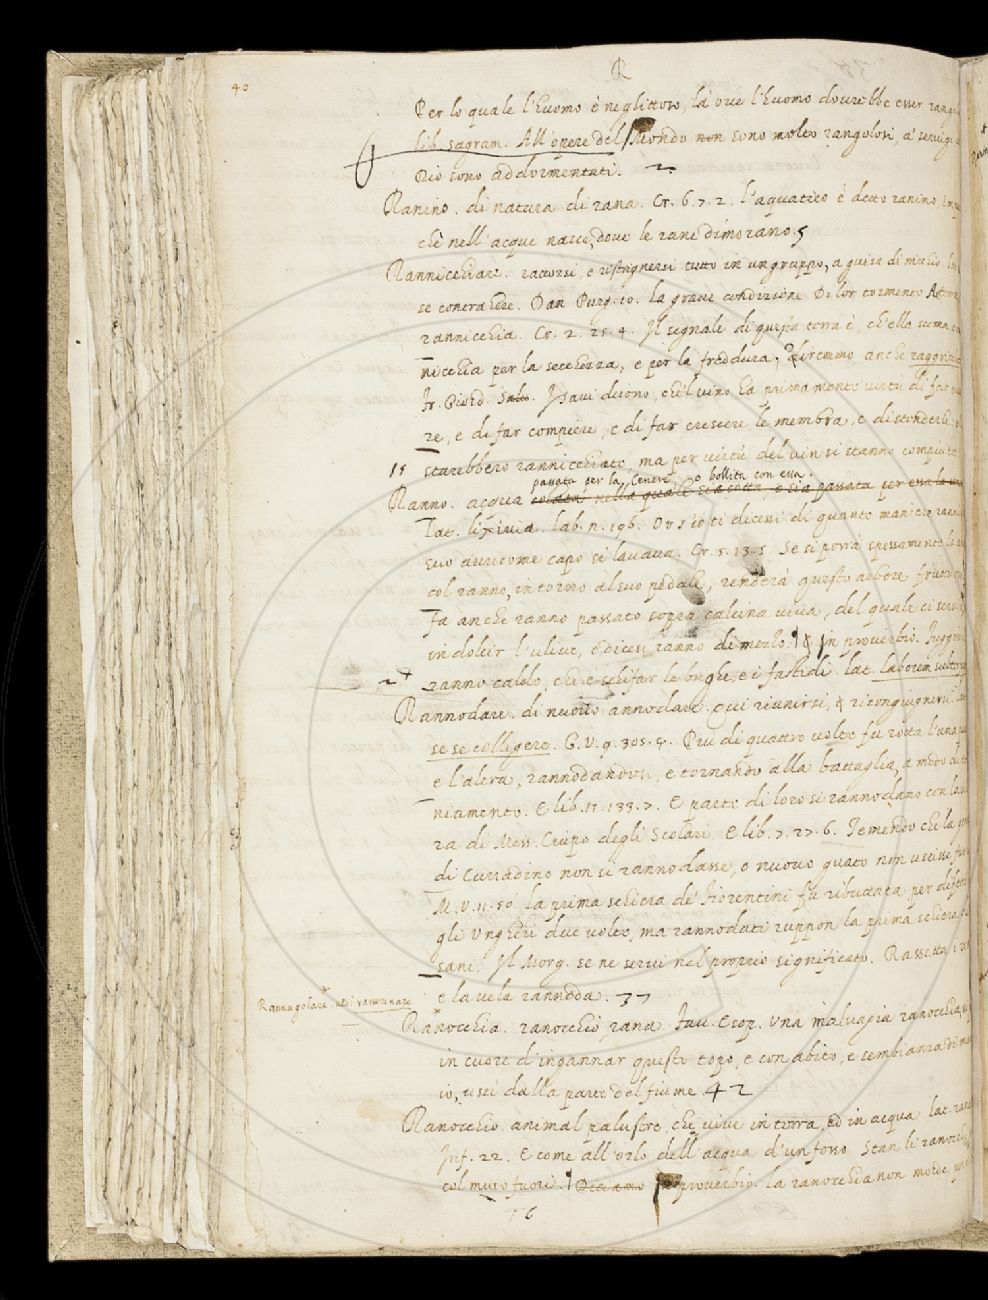 R
40
Per lo quale l'huomo è neglittoso, là oue l'huomo dourebbe esser
lib. sagram. All'opere del Mondo non sono molto rangolosi, a' seruigi
Dio sono addormentati. 2
Ranino. di natura di rana. Cr. 6. 7. 2. l'aquatico è detto ranino,
chè nell'acque nasce, doue le rane dimorano. 5
Rannicchiare. raccorsi, e ristrignersi tutto in un gruppo, a guisa di nicchio.
se contrahere. Dan Purg. 10. la graue condizione Di lor tormento
rannicchia. Cr. 2. 25. 4. Il segnale di questa terra è, ch'ella
nicchia per la secchezza, e per la freddura, diremmo anche
Fr. Giord. I Saui dicono, che'l vino ha prima mente virtù di
re, e di far compiere, e di far crescere le membra, e distenderle.
15 starebbero rannicchiate, ma per virtù del vin si stanno
passata per la Cenere, o bollita con essa.
Ranno. acqua colatni nella quale sia cotta, e sia passata per essa
Lat. lixiuia. lab. n. 196. Ou' s' io ti dicessi di quante maniere
suo auricome capo si lauaua. Cr. 5. 13. 5. Se si porrà spessamente
col ranno, intorno al suo pedale, renderà questo arbore
Fa anche ranno passato sopra calcina viua, del quale ci
indolcir l'uliue, e dicesi ranno di mezzo. ¶ & In prouerbio.
24 ranno caldo, che è schifar le brighe, e i fastidi. lat. laborem
Rannodare. di nuouo annodare. Qui riunirsi, & ricongiugnersi.
se se colligere. G. V. 9. 305. 4. Più di quattro volte fu rotta l'una
e l'altra, rannodandosi, e tornando alla battaglia, a modo di
niamento. E lib. 11. 133. 7. E parte di loro si rannodano con
ra di Mess. Crupo degli Scolari. E lib. 7. 27. 6. Temendo che la
di Curradino non si rannodasse, o nuouo guato non uscisse
M. V. 11. 50. la prima schiera de' Fiorentini fu ributtata per
gli Ungheri due volte, ma rannodati ruppon la prima schiera
sani. Il Morg. se ne seruì nel proprio significato. Rassetta
e la vela rannoda. 37
Rannugolare. uedi rannuuare
Ranocchia. ranocchio, rana. Fau. Esop. Una maluagia ranocchia
in cuore d'ingannar questo topo, e con abito, e sembianza di
io, uscì dalla parte del fiume. 42
Ranocchio. animal palustre, che viue in terra, ed in acqua lat.
Inf. 22. E come all'orlo dell'acqua d'un fosso Stan li
col muso fuori. ¶ Diciamo prouerbio. la ranocchia non morde,
46